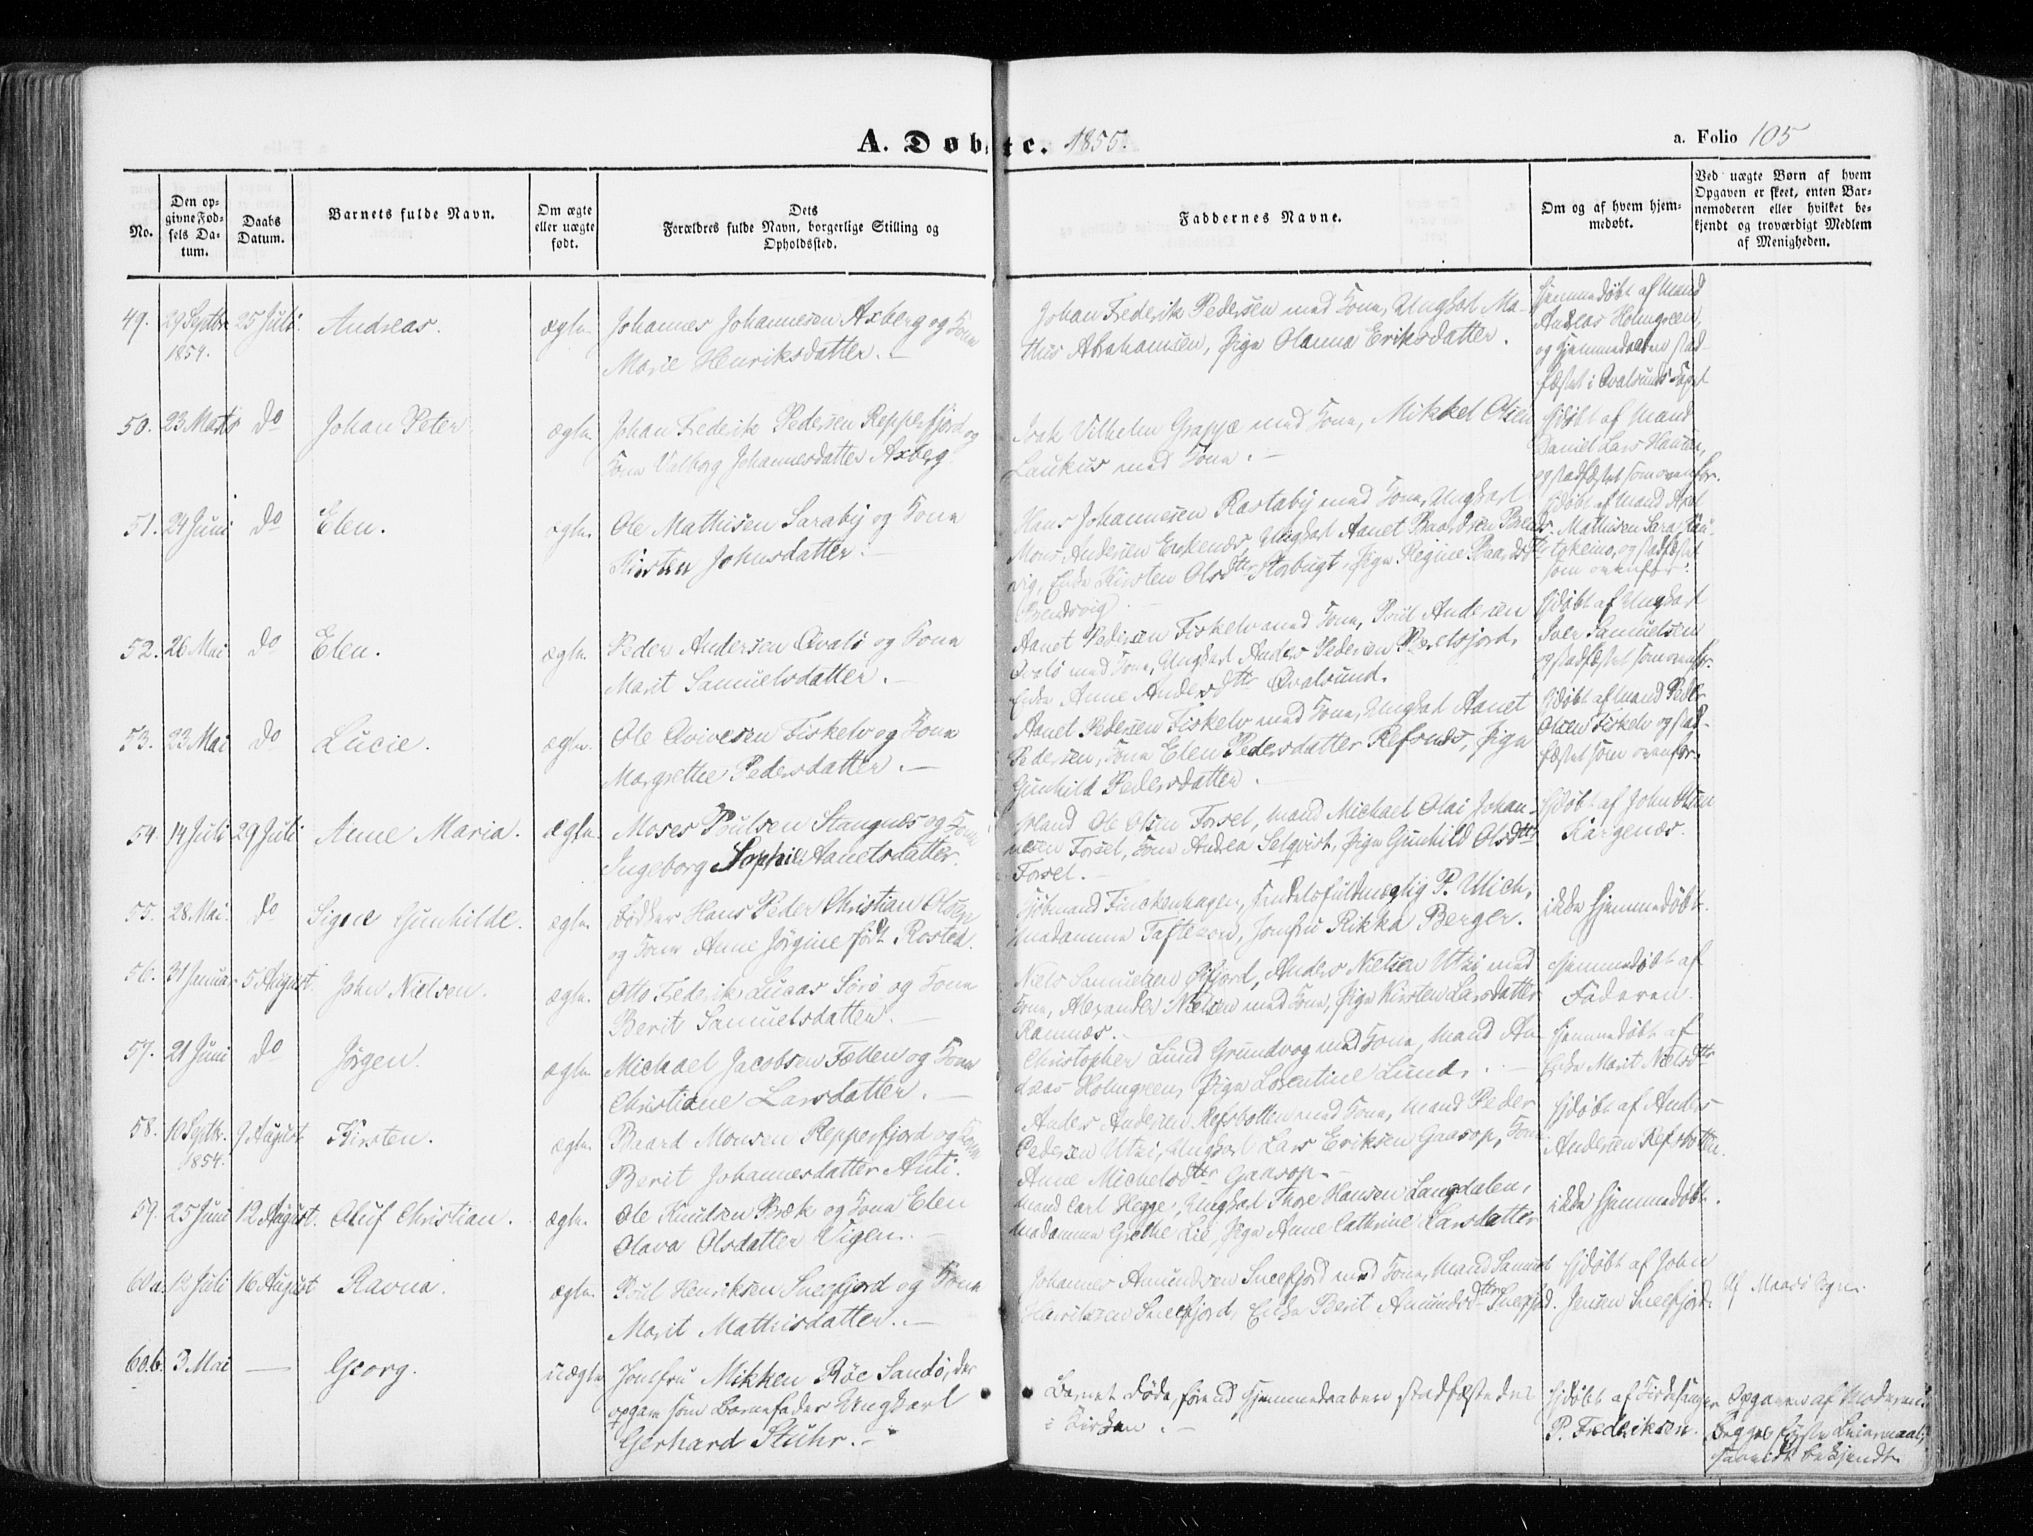 A. Døbte. 1855.
a. Folio 105
No.
Den op-
givne Fød-
sels Da-
tum.
Daabs
Datum.
Barnets fulde Navn.
Om ægte
eller uægte
født.
Dets
Forældres fulde Navn, borgerlige Stilling og
Opholdssted.
Faddernes Navne.
Om og af hvem hjem-
medøbt.
Ved uægte Børn af hvem
Opgaven er skeet, enten Bar-
nemoderen eller hvilket be-
kjendt og troværdigt Medlem
af Menigheden.
49. 29 Septbr 1854. 25 Juli. Andreas. ægte.
Johannes Johannesen Axberg og Kone
Marie Henriksdatter. —
Johan Frederik Pedersen med Kone, Ungkarl Ma-
this Abrahamsen, Pige Olanna Eriksdatter.
Hjemmedøbt af Mand
Andreas Holmgreen,
og Hjemmedaaben stad-
fæstet i Qvalsunds Capel
50. 23 Marts do Johan Peter ægte.
Johan Frederik Pedersen Repperfjord og
Kone Valborg Johannesdatter Axberg.
Isak Vilhelm Grappe med Kone, Mikkel Olsen
Laukus med Kone. —
Hjdøbt af Mand
Daniel Lars Hansen,
og stadfæstet som ovenfor.
51. 24 Juni do Elen. ægte.
Ole Mathisen Saraby og Kone
Kirsten Johnsdatter. —
Hans Johannesen Rastaby med Kone, Ungkarl
Mons Andersen Eckenæs, Ungkarl Aanet Baardsen Brends-
vig, Enke Kirsten Olsdtr Storbugt, Pige Regine Baardsdtr
Brendsvig.
Hjdøbt af Mand Axel
Mathisen Sara Kau-
tokeino, og stadfæstet
som ovenfor.
52. 26 Mai do Elen. ægte.
Peder Andersen Qvalø og Kone
Marit Samuelsdatter. —
Aanet Pedersen Fiskelv med Kone, Poul Andersen
Qvalø med Kone, Ungkarl Anders Pedersen
Enke Anne Andersdtr Qvalsund.
Hjdøbt af Ungkarl
Iver Samuelsen
og stadfæstet som ovenfor.
53. 23 Mai do Lucie. ægte.
Ole Qvivesen Fiskelv og Kone
Margrethe Pedersdatter. —
Aanet Pedersen Fiskelv med Kone, Ungkarl Aanet
Pedersen, Kone Elen Pedersdatter Refsnæs, Pige
Gunhild Pedersdatter. —
Hjdøbt af Mand Peder
Olsen Fiskelv og stad-
fæstet som ovenfor.
54. 14 Juli 29 Juli Anne Maria. ægte.
Moses Poulsen Stangnæs og Kone
Ingeborg Sophie Aanetsdatter.
Mand Ole Olsen Forsel, Mand Michael Olai Johan-
nesen Forsel, Kone Andrea Selqvist, Pige Gunhild Olsdtr
Forsel. —
Hjdøbt af John
Kargenæs.
55. 28 Mai. do Signe Gunhilde. ægte.
Bødker Hans Peder Christian Olsen
og Kone Anne Jørgine født Rosted.
Kjøbmand Finckenhagen, Handelsfuldmægtig P. Ulich,
Madamme Taftezon, Jomfru Rikka Berger.
ikke hjemmedøbt.
56. 31 Januar 5 August. John Nielsen. ægte.
Otto Frederik Lucas Sørø og Kone
Berit Samuelsdatter. —
Niels Samuelsen, Anders Nielsen Utzi med
Kone, Alexander Nielsen med Kone, Pige Kirsten Larsdatter
Ramnæs. —
Hjemmedøbt af
Faderen.
57. 21 Juni do Jørgen. ægte.
Michael Jacobsen Fællen og Kone
Christiane Larsdatter. —
Christopher Lund Grundvog med Kone, Mand An-
dreas Holmgreen, Pige Lorentine Lund. —
Hjemmedøbt af
Enke Marit Nielsdtr
58. 10 Septbr. 1854. 9 August Kirsten. ægte.
Baard Monsen Repperfjord og Kone
Berit Johannesdatter Anti.
Anders Andersen Refsbotten med Kone, Mand Peder
Pedersen Utzi, Ungkarl Lars Eriksen Gaasop, Kone
Anne Michelsdtr Gaasop. —
Hjdøbt af Anders
Andersen Refsbotten.
59. 25 Juni 12 August. Oluf Christian. ægte.
Ole Knudsen Bæk og Kone Elen
Olava Olsdatter Vigen. —
Mand Carl Hegge, Ungkarl Thore Hansen Langdalen,
Madamme Grethe Lie, Pige Anne Cathrine Larsdatter
ikke hjemmedøbt.
60a 12 Juli 16 August Ravna. ægte.
Poul Henriksen Sneefjord og Kone
Marit Mathisdatter. —
Johannes Amundsen Sneefjord med Kone, Mand Samuel
Henriksen Sneefjord, Enke Berit Amundsdtr Sneefjd.
Hjdøbt af John
Jensen Sneefjord.
Af Maasø Sogn.
60.b. 3 Mai — Georg. uægte
Jomfru Mikken Röe Sandø, der
opgav som Barnefader Ungkarl
Gerhard Stuhr. —
Barnet døde, førend Hjemmedaaben stadfæstedes
i Kirken. —
Hjdøbt af Kirkesanger
P. Frederiksen.
Opgaven af Moderen.
Begges første Leiermaal,
saavidt bekjendt.